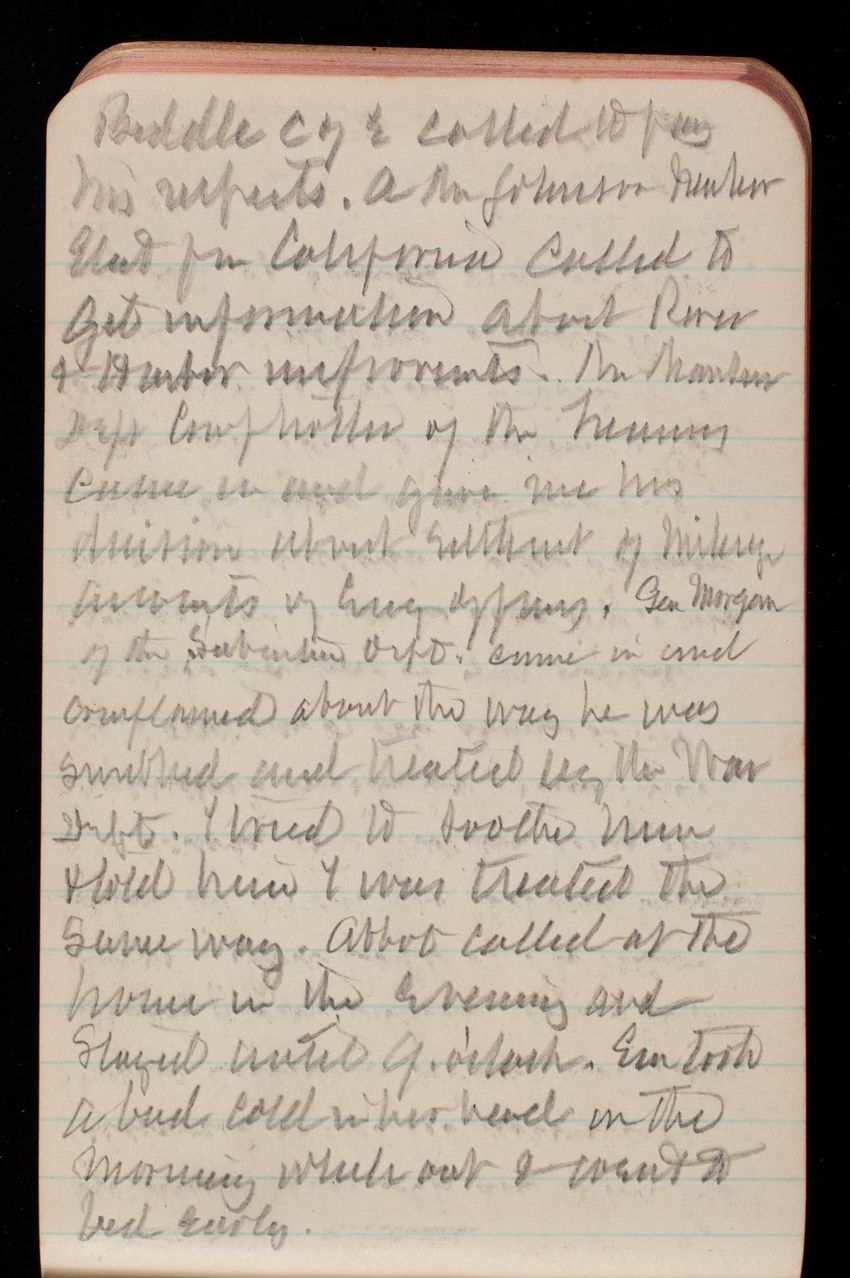 Biddle C of E called to pay
his respects. A Mr Johnson Member
Elect from California called to
get information about River
& Harbor improvemts. Mr Mansur
Dept Comptroller of the Treasury
came in and gave me his
decision about settlemt of Mileage
accounts of Eng officers. Gen Morgan
of the Subsistence Dept. came in and
complained about the way he was
snubbed and treated by the War
Dept. I tried to soothe him
& told him I was treated the
same way. Abbot called at the
house in the Evening and
stayed until 9. o'clock. Em took
a bad cold in her head in the
morning while out & went to
bed early.